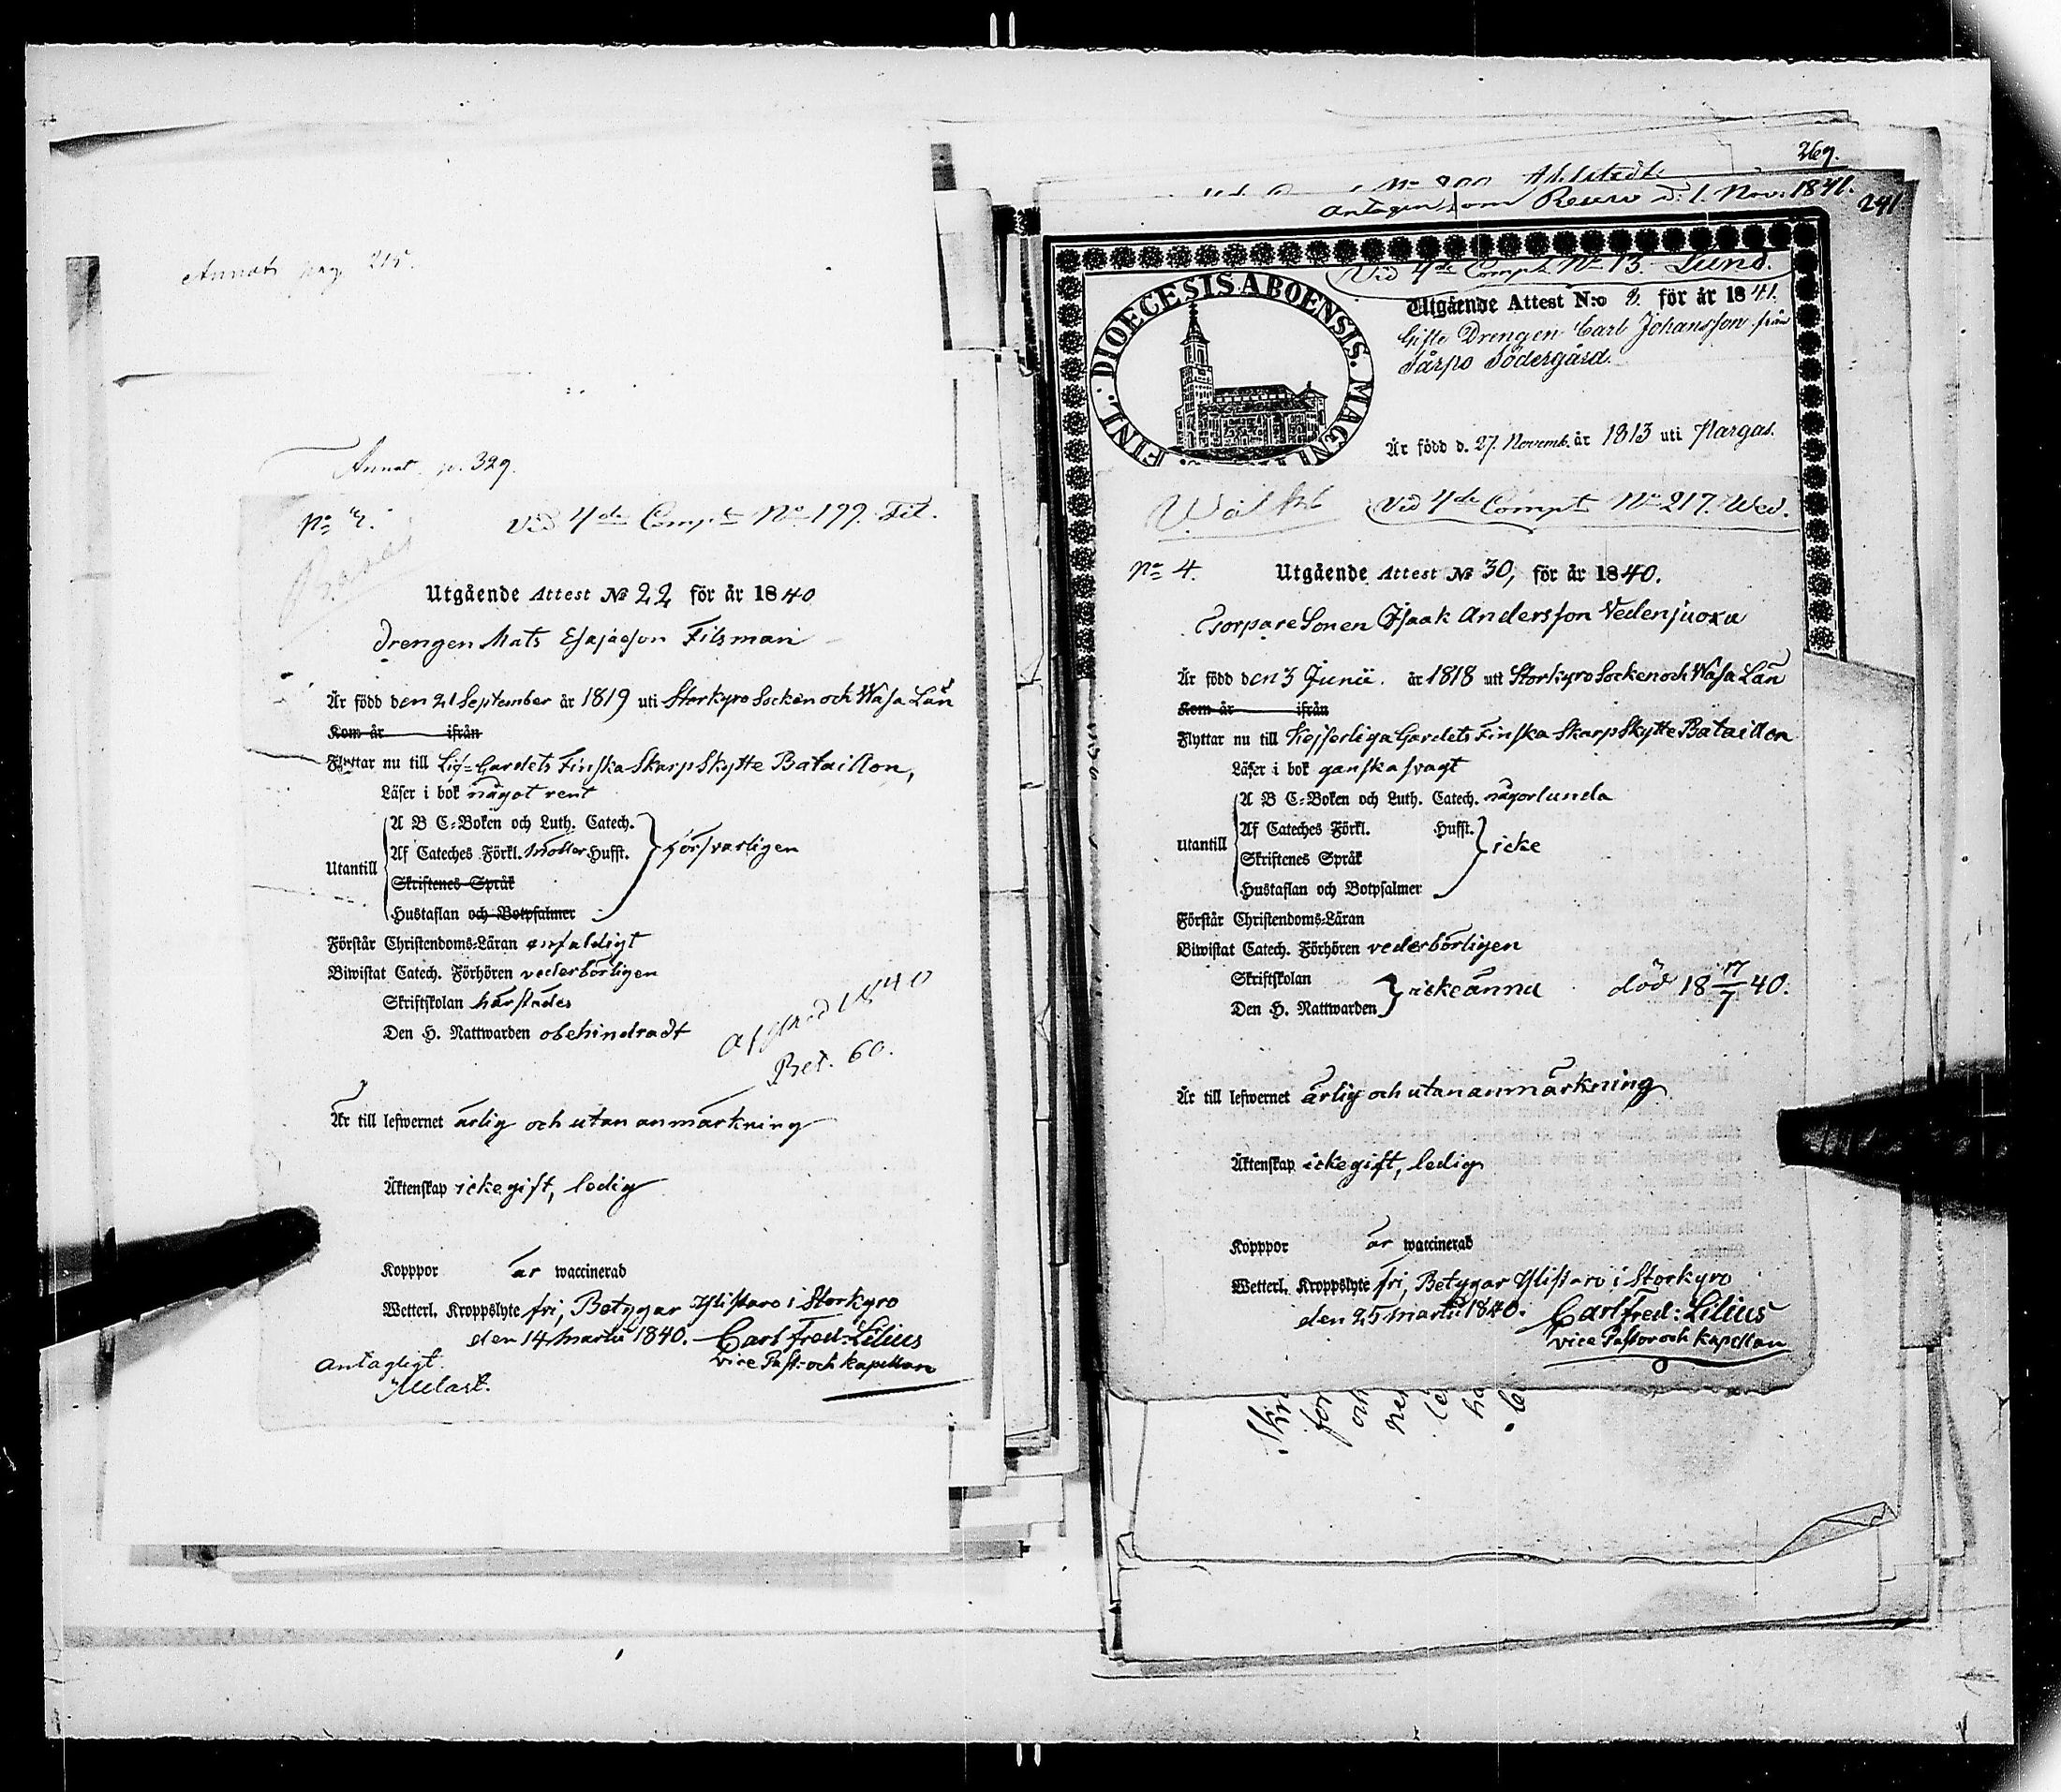 Annot. pag. 215.
Annot. p. 329.
No 2.
Vid 4de Compt No 199. Fil.
Utgående Attest No 22 för år 1840
Drengen Mats Esajasson Filsman
Är född den 21 September år 1819 uti Storkyro Socken och Wasa Län
Kom år ifrån
Flyttar nu till Lif-Gardets Finska SkarpSkytte Bataillon,
Läser i bok något rent
Utantill
A B C-Boken och Luth. Catech.
Af Cateches Förkl. Hufst.
Skriftenes Språk
Hustaflan och Botpsalmer
försvarligen
Förstår Christendoms-Läran enfaldigt
Biwistat Catech. Förhören vederbörligen
Skriftskolan härstädes
Den H. Nattwarden obehindradt
1840
Bet. 60.
Är till lefwernet ärlig och utan anmärkning
Äktenskap icke gift, ledig
Kopppor är waccinerad
Wetterl. Kroppslyte fri, Betygar Ylistaro i Storkyro
den 14 Martii 1840. Carl Fred: Lilius
vice Past: och Kapellan
Antagligt.
269.
Ahlstedt.
Antagen som Reserv d. 1. Nov. 1841.
241
Vid 4de Compt. No 13. Lund.
DIOECESIS ABOENSIS. MAGNI FINL.
Utgående Attest N:o 8. för år 1841.
Gifte Drengen Carl Johansson från
Tärpo Södergård.
Är född d. 27. Novemb. år 1813 uti Pargas.
Vid 4de Compt No 217. Wed.
No 4.
Utgående Attest No 30, för år 1840.
TorpareSonen Isaak Andersson Vedenjuoxu
Är född den 3 Junii. år 1818 uti Storkyro Socken och Wasa Län
Kom år ifrån
Flyttar nu till Kejserliga Gardets Finska SkarpSkytte Bataillon
Läser i bok ganska svagt
Utantill
A B C-Boken och Luth. Catech. någorlunda
Af Cateches Förkl. Hufst.
Skriftenes Språk
Hustaflan och Botpsalmer
icke
Förstår Christendoms-Läran
Biwistat Catech. Förhören vederbörligen
Skriftskolan
Den H. Nattwarden
icke ännu
död 18 17/7 40.
Är till lefwernet ärlig och utan anmärkning
Äktenskap icke gift, ledig
Kopppor är waccinerad
Wetterl. Kroppslyte fri, Betygar Ylistaro i Storkyro
den 25 Martii 1840. Carl Fred: Lilius
vice Pastor och Kapellan